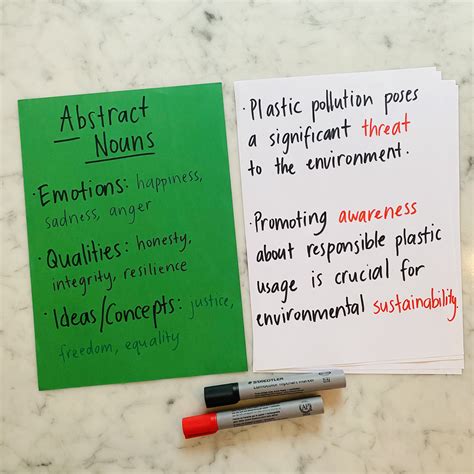 Abstract
Nouns
• Emotions: happiness,
sadness, anger
• Qualities: honesty,
integrity, resilience
• Ideas/Concepts: justice,
freedom, equality
• Plastic pollution poses
a significant threat
to the environment.
• Promoting awareness
about responsible plastic
usage is crucial for
environmental sustainability.
STAEDTLER